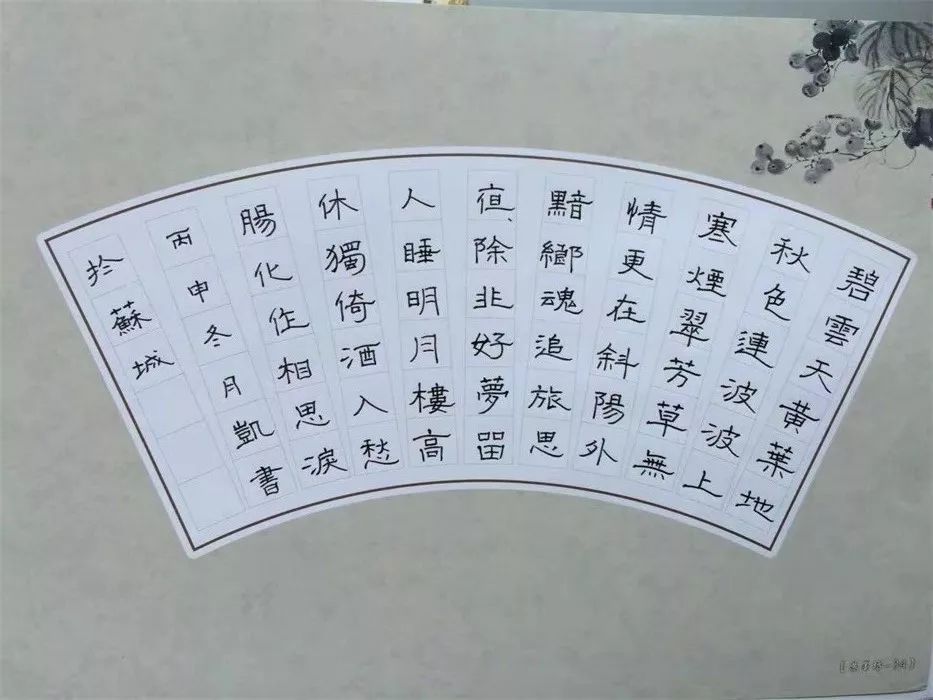 碧雲天黄葉地
秋色連波波上
寒煙翠芳草無
情更在斜陽外
黯鄉魂追旅思
夜、除非好夢留
人睡明月樓高
休獨倚酒入愁
腸化作相思淚
丙申冬月凱書
於蘇城